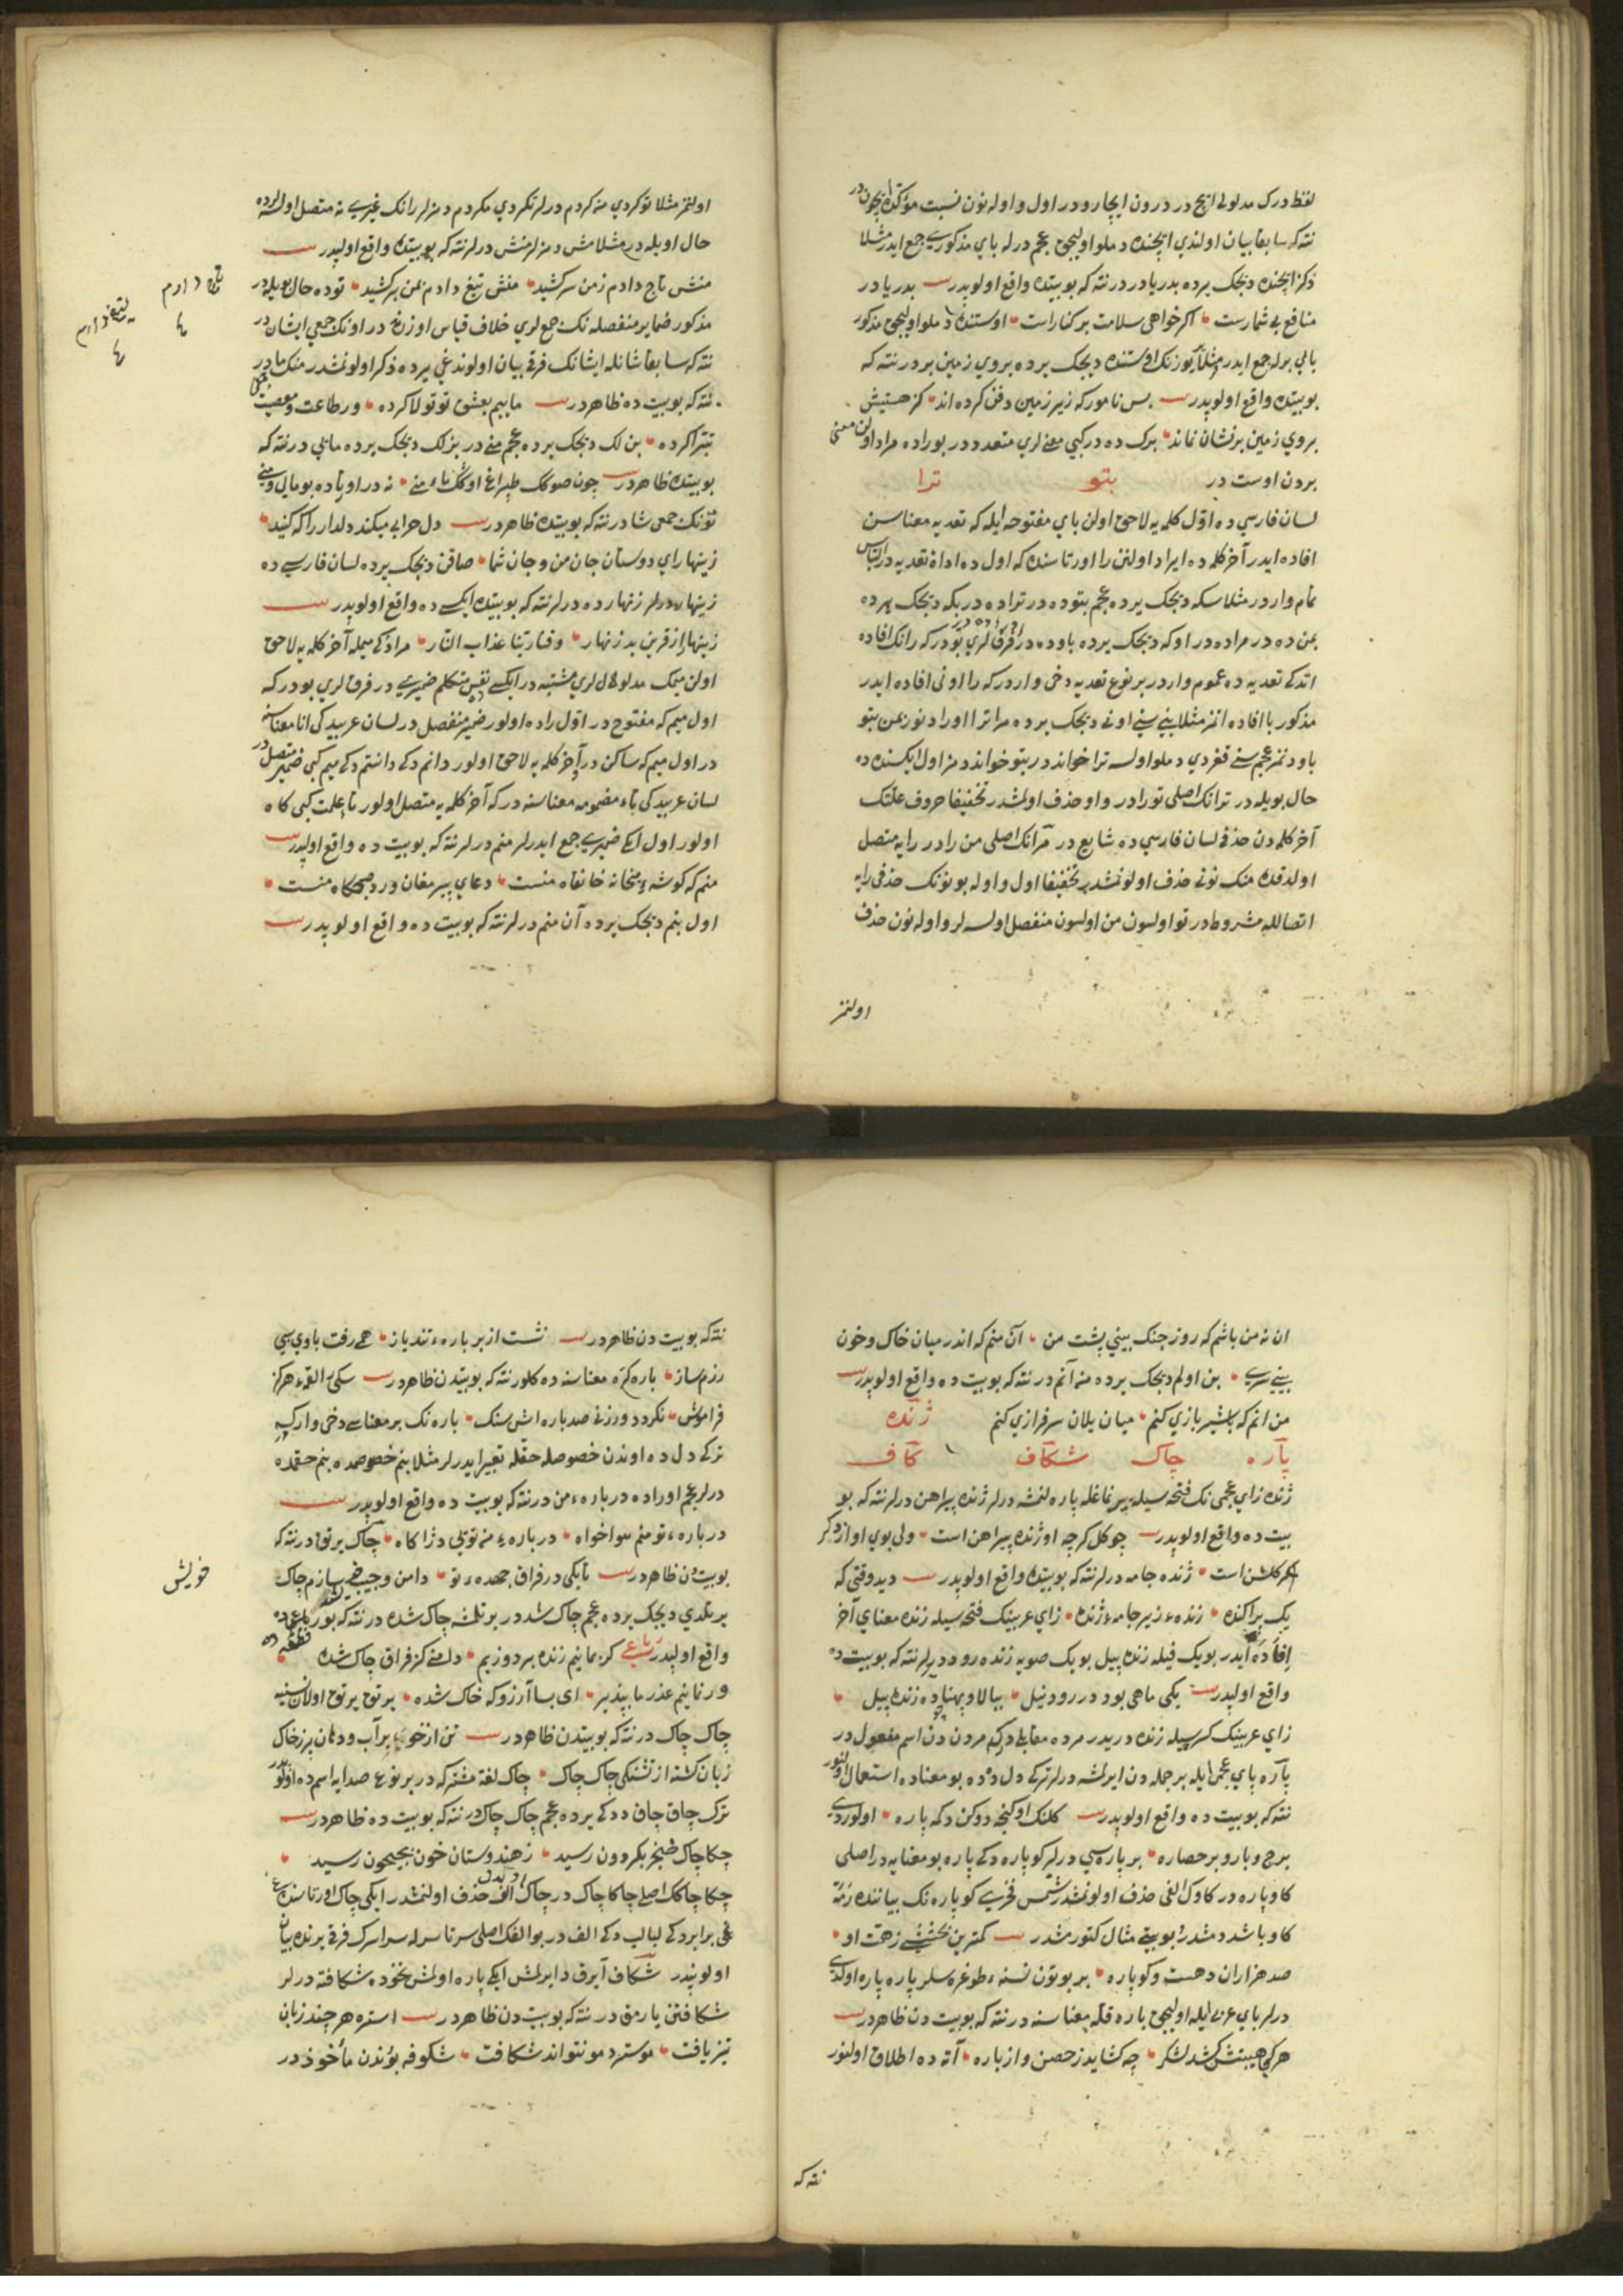 لفظ درک مدلولی ایچ در درون ایچارو در اول و اوله نون نسبت مؤکد ایچون در
نته که سابقا بیان اولندی ایچنده دملو اولیجق عجم درله بای مذکوری جمع ایدر مثلا
دکز ایچنده دیجک یرده بدریا در در نته که بو بیتده واقع اولوبدر بدریا در
منافع بی شمارست اکر خواهی سلامت بر کنارست اوستنده دملو اولیجق مذکور
بای برله جمع ایدر مثلا یوزنک اوستنده دیجک یرده بروی زمین بر در نته که
بو بیتده واقع اولوبدر بس نامور که زیر زمین دفن کرده اند کز هستیش
بروی زمین بر نشان نماند برک ده در کبی معنی لری متعدد در بوراده مراد اولن معنی
بردن اوست در بتو ترا
لسان فارسی ده اول کلمه یه لاحق اولن بای مفتوحه ایله که تعدیه معناسن
افاده ایدر آخر کلمه ده ایراد اولنن را اورتاسنده که اول ده اداة تعدیه در التباس
تمام وار در مثلا سکه دیجک یرده عجم بتو ده در ترا ده در بکه دیجک یرده
بمن ده در مرا ده در اوکه دیجک یرده باو ده در فرق لری بو در که رانک افاده
اتدکی تعدیه ده عموم وار در بر نوع تعدیه دخی وار در که را اونی افاده ایدر
مذکور با افاده اتمز مثلا بنی سنی اونی دیجک یرده مرا ترا اورا دنور بمن بتو
باو دنمز عجم سنی قغردی دملو اولسه ترا خواند در بتو خواند دمز اول ایکسنده ده
حال بویله در ترانک اصلی تورا در واو حذف اولنمشدر تخفیفا حروف علتک
آخر کلمه دن حذفی لسان فارسی ده شایع در مرانک اصلی من را در رایه متصل
اولدقده منک نونی حذف اولونمشدر تخفیفا اول و اوله بو نونک حذفی رایه
اتصالله مشروط در تو اولسون من اولسون منفصل اولسه لر واو له نون حذف
اولنمز
اولنمز مثلا تو کردی من کردم درلر تکردی مکردم دمزلر رانک غیری نه متصل اولسه ده
حال اویله در مثلا مش دمزلر منش درلر نته که بو بیتده واقع اولیدر
منش تاج دادم زمن سر کشید منش تیغ دادم بمن بر کشید تو ده حال بویله در
مذکور ضمایر منفصله نک جمع لری خلاف قیاس اوزرنه در اونک جمعی ایشان در
نته که سابقا شانله ایشانک فرقی بیان اولوندغی یرده ذکر اولونمشدر منک ما در
نته که بو بیت ده ظاهر در ماییم بعشق تو تولا کرده وز طاعت و معصیت
تبرا کرده بن لک دیجک یرده عجم منی در بزلک دیجک یرده مایی در نته که
بو بیتده ظاهر در چون صوکک طپراغ اوکک ماء منی نه در اورتاده بو مایی و منی
تونک جمعی شما در نته که بو بیتده ظاهر در دل خرابی میکند دلدار را که کنید
زینهار ای دوستان جان من و جان شما صاقن دیجک یرده لسان فارسی ده
زینهار درلر زنهار ده درلر نته که بو بیتده ایکسی ده واقع اولوبدر
زینهار از قرین بد زنهار وقنا ربنا عذاب النار مرادکی میمله آخر کلمه یه لاحق
اولن میمک مدلوللری مشتبه در ایکسی نفس متکلم ضمیری در فرق لری بو در که
اول میم که مفتوح در اول راده اولور ضمیر منفصل در لسان عربیده کی انا معناسنه
در اول میم که ساکن در آخر کلمه یه لاحق اولور دانم دکی دانستم دکی میم کبی ضمیر متصل در
لسان عربیده کی تاء مضمومه معناسنه در که آخر کلمه یه متصل اولور تا علمت کبی کاه
اولور اول ایکی ضمیری جمع ایدرلر منم درلر نته که بو بیت ده واقع اولیدر
منم که کوشه میخانه خانقاه منست دعای پیر مغان ورد صبحکاه منست
اول بنم دیجک یرده آن منم درلر نته که بو بیت ده واقع اولوبدر
ان نه من باشم که روز جنک بینی پشت من آن منم که اندر میان خاک و خون
بینی سری بن اولم دیجک یرده من آنم در نته که بو بیت ده واقع اولوبدر
من انم که باشیر بازی کنم میان یلان سرفرازی کنم ژنده
پاره چاک شکاف کاف
ژنده زای عجمی نک فتحه سیله پیر نماغله پاره لنمشه درلر ژنده پیراهن درلر نته که بو
بیت ده واقع اولوبدر چو کل کرچه او ژنده پیراهن است ولی بوی او از دکر
کلشن است ژنده جامه درلر نته که بو بیتده واقع اولوبدر دید وقتی که
یک پراکنده زنده زیر جامه ژنده زای عربینک فتحه سیله زنده معنای آخر
افاده ایدر بویک فیله زنده پیل بویک صویه زنده رود درلر نته که بو بیت ده
واقع اولیدر یکی ماهی بود در رود نیل ببالا و پهنا ده زنده پیل
زای عربینک کسریله زنده دریدر مرده مقابلی در که مردن دن اسم مفعول در
پاره بای عجمی ایله بر جمله دن ایرلمشه درلر ترکی دل ده ده بو معناده استعمال اولنور
نته که بو بیت ده واقع اولوبدر کلنک اوکنجه دوکن دکمه پاره اولوردی
برج و بارو بر حصاره بر پاره سی درلر کو پاره دکی پاره بو معنایه در اصلی
کاو پاره در کاوک الفی حذف اولونمشدر شمس فخری کو پاره نک بیاننده رمه
کاو باشد دمشدر بو بیتی مثال کتورمشدر کمترین بخششی ز همت او
صد هزاران دهست و کو پاره بر بوتون نسنه طوغره سلر پاره پاره اولدی
درلر بای عربی ایله اولیجق باره قلعه معناسنه در نته که بو بیت دن ظاهر در
هر کجا هیبتش کشد لشکر چه کشاید ز حصن و از باره آته ده اطلاق اولنور
نته که
نته که بو بیت دن ظاهر در نشست از بر باره تند یاز همی رفت با وی بسی
رزم ساز باره کره معناسنه ده کلور نته که بو بیتدن ظاهر در سکی را لقمه هرکز
فراموش نکردد ور زنی صد باره اش سنک باره نک بر معناسی دخی وار که
ترکی دل ده اوندن خصوصله حقله تعبیر ایدرلر مثلا بنم خصوصمده بنم حقمده
درلر عجم اوراده در باره من در نته که بو بیت ده واقع اولوبدر
در باره تو منم هوا خواه در باره من تو یی دژ آکاه چاک یرتق در نته که
بو بیت دن ظاهر در تا بکی در فراق جهده تو دامن و جیب سازم چاک
خویش
یرتلدی دیجک یرده عجم چاک شد در یرتلمشه چاک شده در نته که بو رباعیده
واقع اولیدر رباعی کر بمانیم زنده بر دوزیم دامنی کز فراق چاک شده
ور نمانیم عذر ما بپذیر ای بسا آرزو که خاک شده یرتق یرتق اولان نسنیه
چاک چاک در نته که بو بیتدن ظاهر در تن از خوی پر آب و دهان پر ز خاک
زبان کشته از تشنکی چاک چاک چاک لفظی مشترکه در بر نوع صدایه اسم ده اولور
ترک چاق چاق ددکی یرده عجم چاک چاک در نته که بو بیت ده ظاهر در
چکاچاک خنجر بکردون رسید ز هندوستان خون بجیحون رسید
چکاچاکک اصلی چاکا چاک در چاک الف حذف اولنمشدر ایکی چاک اورتاسنده
غی برابر دکی لبالب دکی الف در بو الفک اصلی سرتاسرله سراسرک فرقی یرنده بیان
اولونیدر شکاف آیرق در ایرلمش ایکی پاره اولمش نخوده شکافته درلر
شکافتن یارمق در نته که بو بیت دن ظاهر در استره هر چند زبان
تیز یافت موسترد مو نتواند شکافت شکوفه بوندن مأخوذ در